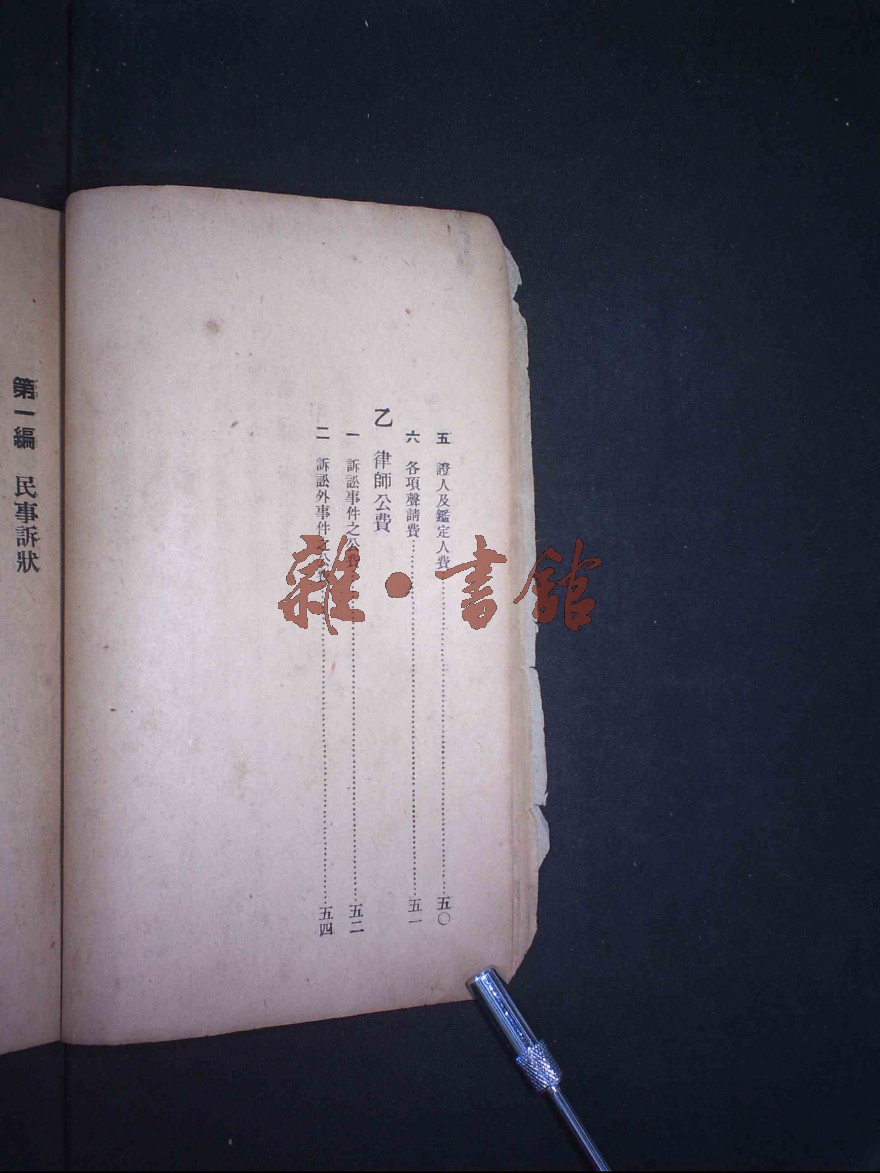 五　證人及鑑定人費……五〇
六　各項聲請費……五一
乙　律師公費
一　訴訟事件之公費……五二
二　訴訟外事件之公費……五四
第一編　民事訴狀
雜·書館